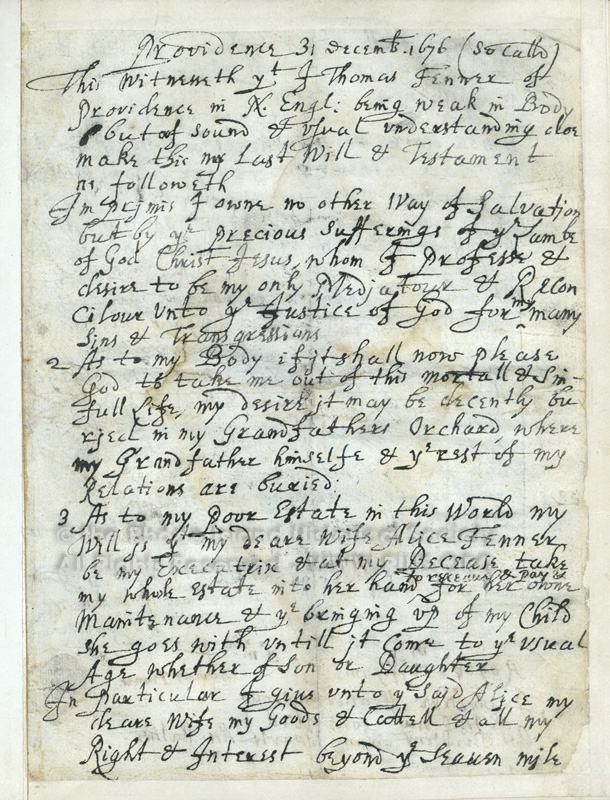 Providence 31 Decemb. 1676 (so calld)
This Witnesseth yt I Thomas Fenner of
Providence in N. Engl: being weak in Body
but of sound & usual understanding doe
make this my Last Will & Testament
as followeth
In primis I owne no other Way of Salvation
but by ye precious sufferings of ye Lambe
of God Christ Jesus, whom I Professe &
desire to be my only Mediatour & Recon
cilour unto ye Justice of God for my many
Sins & Transgressions
2 As to my Body if it shall now please
God to take me out of this mortall & Sin-
full Life, my desire it may be decently bu
ried in my Grandfathers Orchard, where
my Grandfather himselfe & ye rest of my
Relations are buried.
3 As to my Poor Estate in this World my
Will is yt my deare Wife Alice Fenner
be my Executrix & at my Decease take
my whole Estate into her hand to receive & pay & for her owne
Maintenance & ye bringing up of my Child
she goes with untill it come to ye usual
Age whether of Son or Daughter
In Particular I give unto ye said Alice my
deare Wife my Goods & Cattell & all my
Right & Interest beyond ye Seaven mile